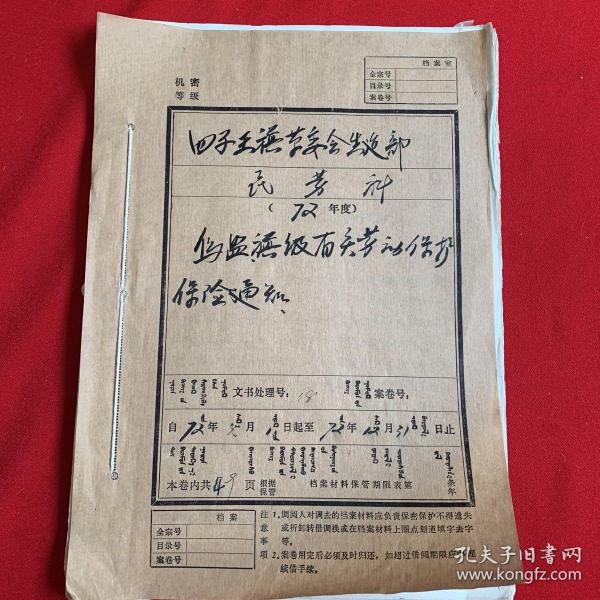 档案室
机密
等级
全宗号
目录号
案卷号
四子王旗革委会生建部
民劳科
(72年度)
乌盟旗级有关劳动保护
保险通知
文书处理号:18
案卷号:
自72年 月1日起至72年12月31日止
本卷内共49页 根据保管 档案材料保管期限表第 条年
档案
全宗号
目录号
案卷号
注意事项
1.调阅人对调去的档案材料应负责保密保护不得遗失
或折卸转借调换或在档案材料上圈点划道填字去字
等。
2.案卷用完后必须及时归还,如超过借阅期限应
续借手续。
孔夫子旧书网
www.kongfz.com